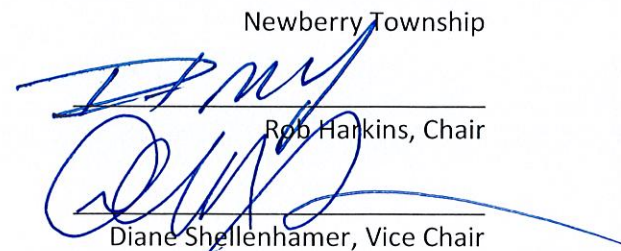 Newberry Township
Rob Harkins, Chair
Diane Shellenhamer, Vice Chair